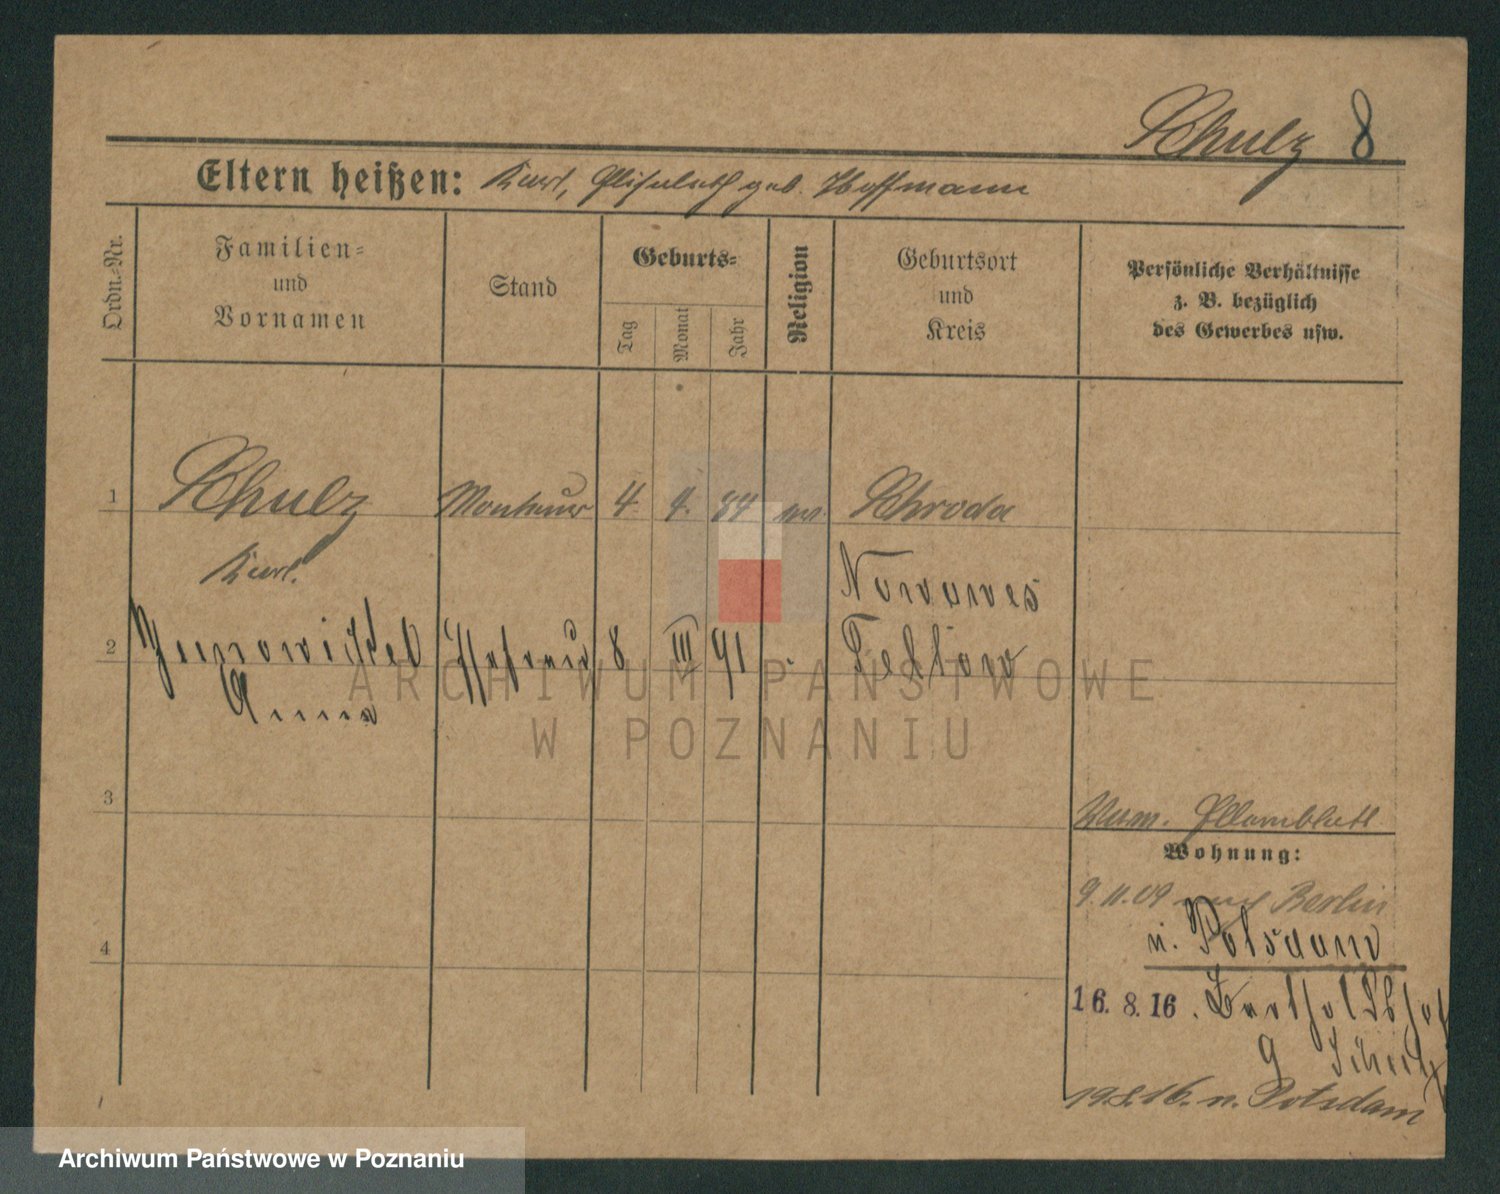 Schulz 8
Eltern heißen: Karl, Elisabeth geb. Hoffmann
Ordn.=Nr.
Familien=
und
Vornamen
Stand
Geburts=
Tag
Monat
Jahr
Religion
Geburtsort
und
Kreis
Persönliche Verhältnisse
z. B. bezüglich
des Gewerbes usw.
1 Schulz Monteur 4. 4. 84 ev. Schroda
Karl.
Nowawes
2 Ehefrau 8 III 91 Teltow
Anna
ARCHIWUM PAŃSTWOWE
W POZNANIU
3
Stammblatt
Wohnung:
9.11.09 nach Berlin
4
n. Potsdam
16. 8. 16. Bertholdshof
9 Schulz
19.8.16. n. Potsdam
Archiwum Państwowe w Poznaniu